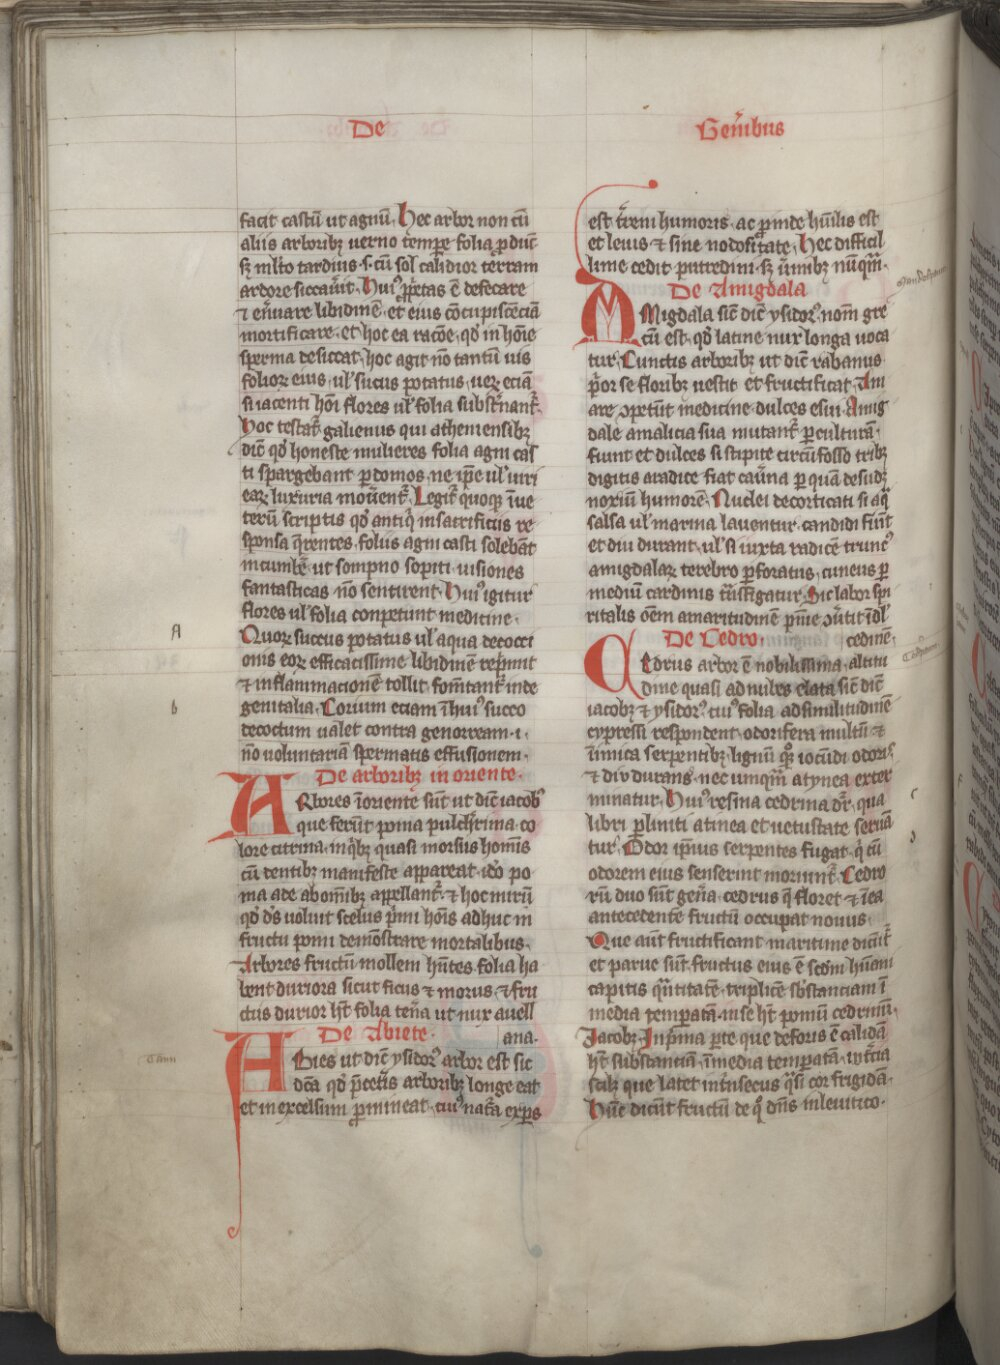 De
Gen̄ibus
facit castū ut agnū. Hec arbor non cū
aliis arboribꝫ uerno tempe folia ꝓduc̄
sꝫ ml̄to tardius .s. cū sol calidior terram
ardore siccau̅it. Huiꝰ ꝓp̄etas ē desecare
⁊ en̄uare libidinē. et eius cōcupiscēciā
mortificare. et hoc ea rac̄oe. qd̄ in hōie
sperma desiccat. hoc agit nō tantū uis
folioꝝ eius. ul' sucus potatus. ueꝝ eciā
si iacenti hōi flores ul' folia subst̄nant᷑.
Hoc testat᷑ galienus qui atheniensibꝫ
dic̄ qd̄ honeste mulieres folia agni cas
ti spargebant ꝑ domos. ne ip̄e ul' uiri
eaꝝ luxuria mou̅ent᷑. Legit᷑ quoqꝫ ī ue
terū scriptis qd̄ antiq̄ in sacrificiis re
sponsa q̄rentes. foliis agni casti solebāt
incumbē ut sompno sopiti uisiones
fantasticas nō sentirent. Huiꝰ igitur
flores ul' folia conpetunt medicine.
A
Quoꝝ succus potatus ul' aqua decocci
onis eoꝝ efficacissime libidinē rep̄mit
⁊ inflammacionē tollit. fom̄tant᷑ inde
b
genitalia. Corium eciam ī huiꝰ succo
decoctum ualet contra genorream .i.
nō uoluntariā spermatis effusionem.
De arboribꝫ in oriente.
ARbores ī oriente sūt ut dic̄ iacobꝰ
que ferūt poma pulch̄rima. co
lore citrina. in q̄bꝫ quasi morsus homīs
cū dentibꝫ manifeste appareat. id̄o po
ma ade ab om̄ibꝫ appellant᷑. ⁊ hoc mirū
qd̄ d̄s uoluit scelus p̄mi hōis adhuc in
fructu pomi demōstrare mortalibus.
Arbores fructū mollem hn̄tes. folia ha
bent duriora sicut ficus ⁊ morus. ⁊ fru
ctus durior hn̄t folia ten̄a ut nux auell
De Abiete. ana.
ABies ut dic̄ ysidorꝰ arbor est sic
dc̄a qd̄ p̄ cet̄is arboribꝫ longe eat
et in excelsum ꝓmineat. cuiꝰ nat̄a expers
est t̄reni humoris. ac ꝓinde hūilis est
et leuis ⁊ sine nodositate. Hec difficil
lime cedit putredini. sꝫ ū̄mibꝫ nūqm̄.
De Amigdala
AMigdala sic̄ dic̄ ysidorꝰ. nom̄ gre
cū est. qd̄ latine nux longa uoca
tur. Cunctis arboribꝫ ut dic̄ rabanus
p̄or se floribꝫ uestit et fructificat. Am
are ꝯpetūt medicine. dulces esui. Amig
dale a malicia sua mutant᷑ ꝑ cultūrā.
fiunt et dulces si stipite circū fosso tribꝫ
digitis a radice fiat cau̅na ꝑ quā desudꝫ
noxiū humorē. Nuclei decorticati si aq̄
salsa ul' marina lauentur. candidi fiūt
et diu durant. ul' si iuxta radicē truncꝰ
amigdalaꝝ terebro ꝑforatus. cuneus ꝑ
mediū cardinis t̄nsfigatur. Sic labor spi
ritalis om̄em amaritudinē pn̄ie ꝯūtit ī dul'
De Cedro. cedinē.
CEdrus arbor ē nobilissima. altitu
dine quasi ad nubes elata sic̄ dic̄
iacobꝫ ⁊ ysidorꝰ. cuiꝰ folia ad similitudinē
cypressi respondent. odorifera multū ⁊
inimica serpentibꝫ. lignū qꝫ iocūdi odorꝭ
⁊ diu durans. nec umqm̄ a tynea exter
minatur. Huiꝰ resina cedrina dr̄. qua
libri ꝑliniti a tinea et uetustate seruā
tur. Odor ip̄ius serpentes fugat. q̄ cū
odorem eius senserint moriunt᷑. Cedro
rū duo sūt gen̄a. cedrus q̄ floret ⁊ ī ea
antecedentē fructū occupat nouus.
Que aūt fructificant maritime dicūt᷑
et parue sūt. fructus eius ē scd̄m hūani
capitis q̄ntitatē. triplicē sb̄stanciam ī
media temperatā. in se hn̄t pomū cedrinū.
Jacobꝫ. In p̄ma ꝑte que deforis ē calidā
hn̄t substanciā. ī media temperatā. in tcīa
scilꝫ que latet int̄nsecus q̄si cor frigidā.
Hūc dicūt fructū de qͦ dn̄s in leuitico.